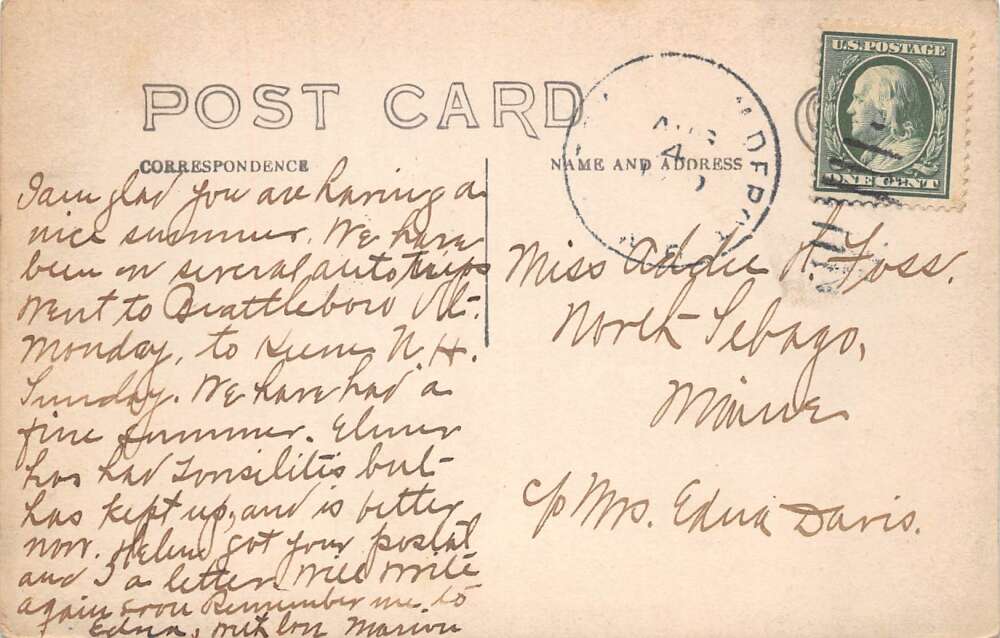 POST CARD
CORRESPONDENCE
NAME AND ADDRESS
U.S. POSTAGE
ONE CENT
AUG
4
I am glad you are having a
nice summer. We have
been on several auto trips
Went to Brattleboro Vt.
Monday, to Keene N.H.
Sunday. We have had a
fine summer. Elmer
has had Tonsilitis but
has kept up, and is better
now. Helen got your postal
and I a letter. Will write
again soon Remember me to
Edna, with love Marion
Miss Addie H. Foss.
North Sebago,
Maine
c/o Mrs. Edna Davis.